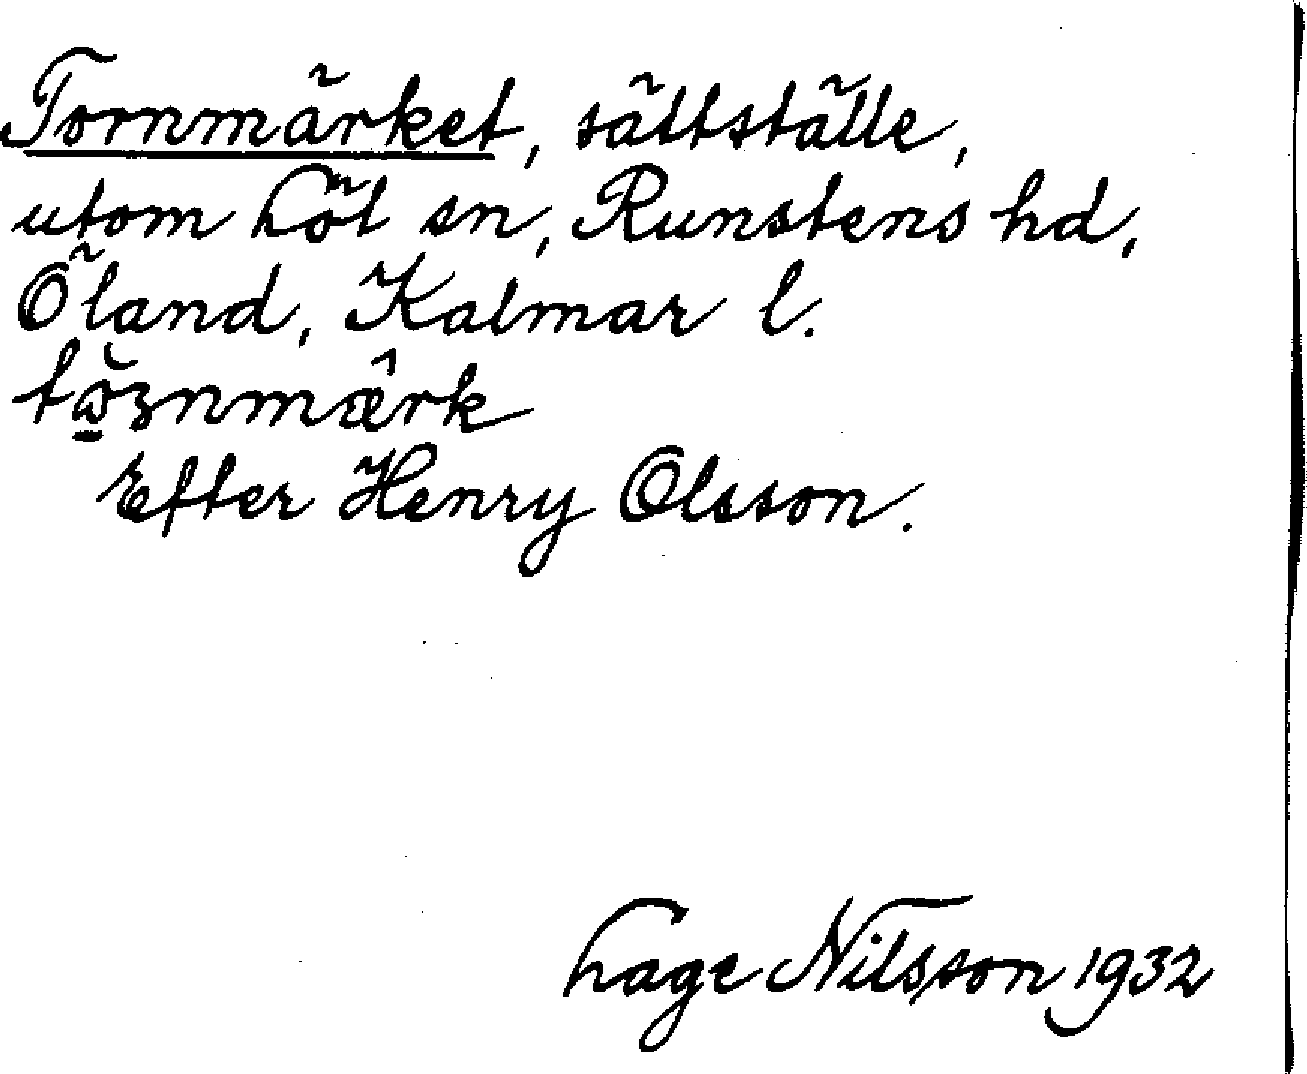 Tornmärket, sättställe,
utom Löt sn, Runstens hd,
Öland, Kalmar l.
Efter Henry Olsson.
Lage Nilsson 1932